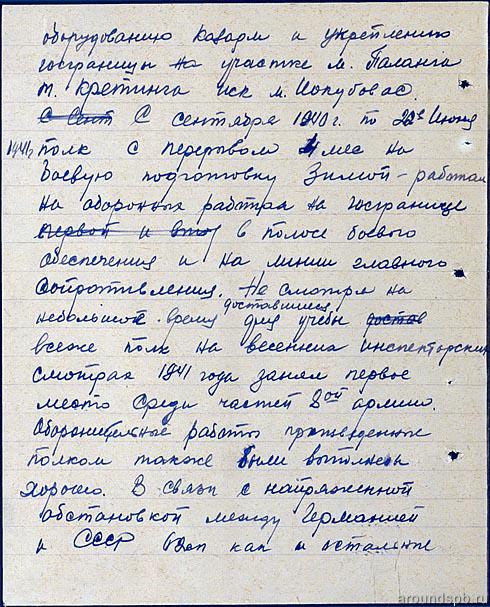 оборудованию казарм и укреплению
госграницы на участке м. Паланга
м. Кретинга иск м. Иокубовас.
с Сент С сентября 1940г. по 22е Июня
1941г. полк с перерывом 4 мес на
боевую подготовку Зимой - работал
на оборонных работра на госгранице
первой и втор в полосе боевого
обеспечения и на линии главного
сопротивления. Не смотря на
доставшиеся
небольшой время для учебы достав
всеже полк на весенних инспекторских
смотрах 1941 года занял первое
место среди частей 8ой армии.
Оборонительные работы произведенные
полком также были выполнены
хорошо. В связи с напряженной
обстановкой между Германией
и СССР как и остальные
aroundspb.ru